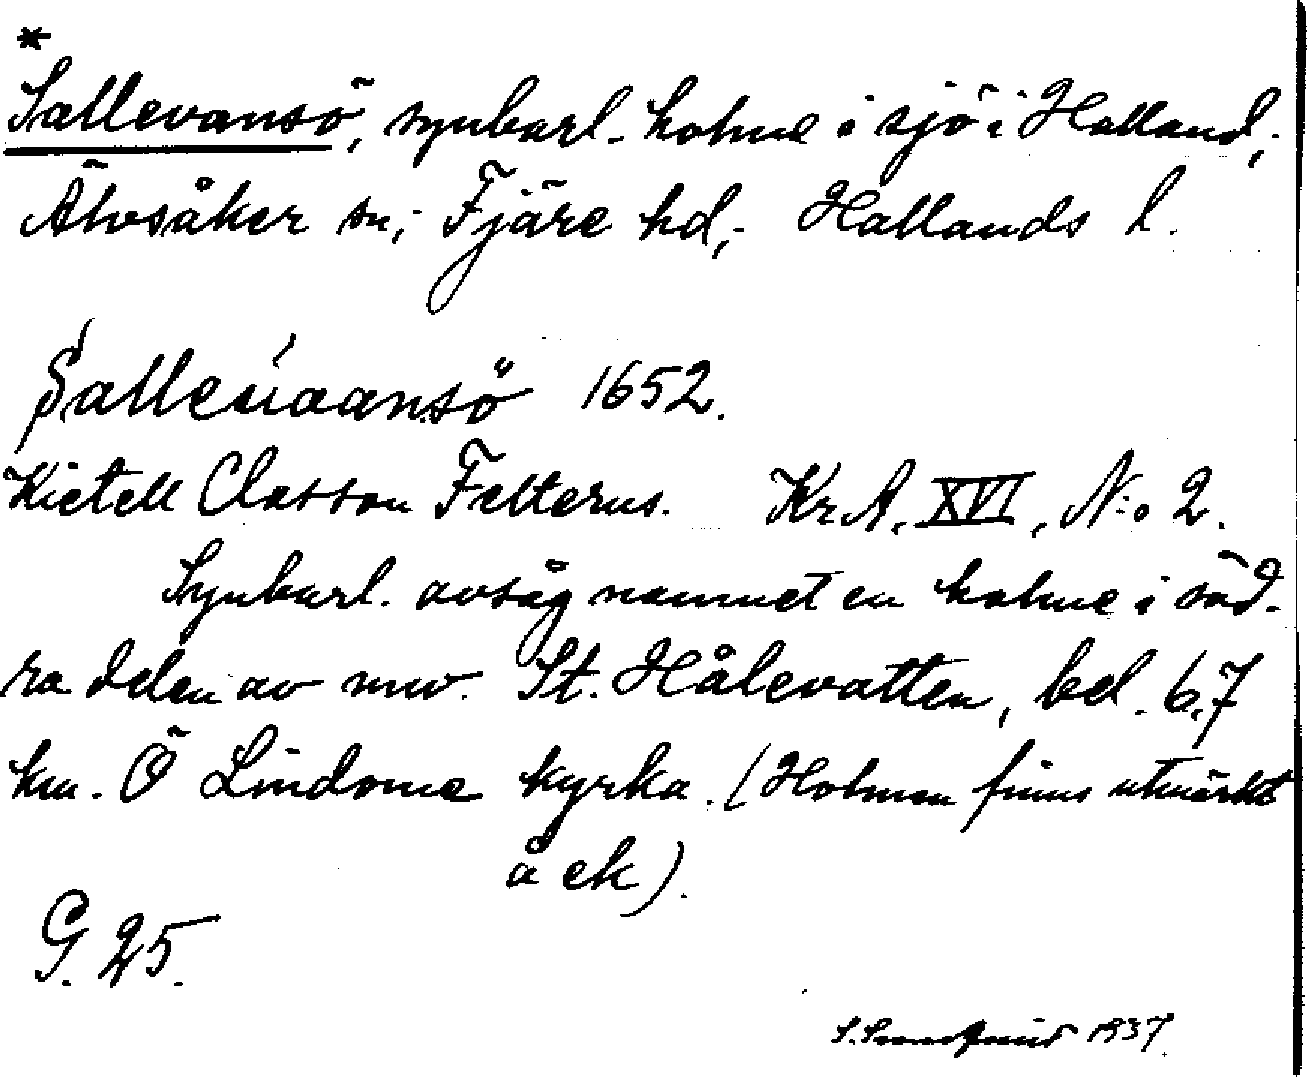 *
Sallevansö, synbarl. holme i sjö i Halland,
Älvsåker sn, Fjäre hd, Hallands l.
Salleuaansö 1652.
Kietell Classon Felterus. Kr.A. XVI, N:o 2.
Synbarl. avsåg namnet en holme i söd-
ra delen av nuv. St. Hålevatten, bel. 6,7
km. Ö Lindome kyrka. (Holmen finns utmärkt
å ek).
G. 25.
S. 1937